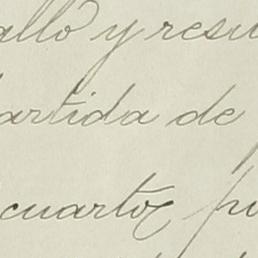 allo y resu
artida de
cuarto, pu